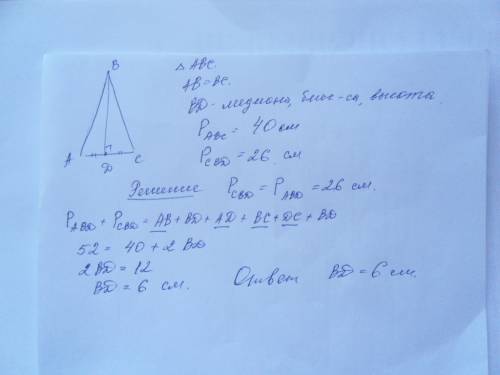 B
A
C
D
△ ABC.
AB = BC.
BD - медиана, бис-са, высота.
P ABC = 40 см
P CBD = 26 см
Решение P CBD = P ABD = 26 см.
P ABD + P CBD = AB + BD + AD + BC + DC + BD
52 = 40 + 2 BD
2 BD = 12
BD = 6 см. Ответ BD = 6 см.